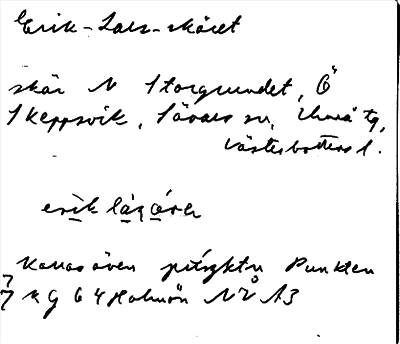 Erik-Lars-skäret
skär N Storgrundet, Ö
Skeppsvik, Sävars sn, Umeå tg,
Västerbottens l.
erik lársǫ́ren
Kallas även pítsyktn Punkten
77 N G 64 Holmön NV Å3